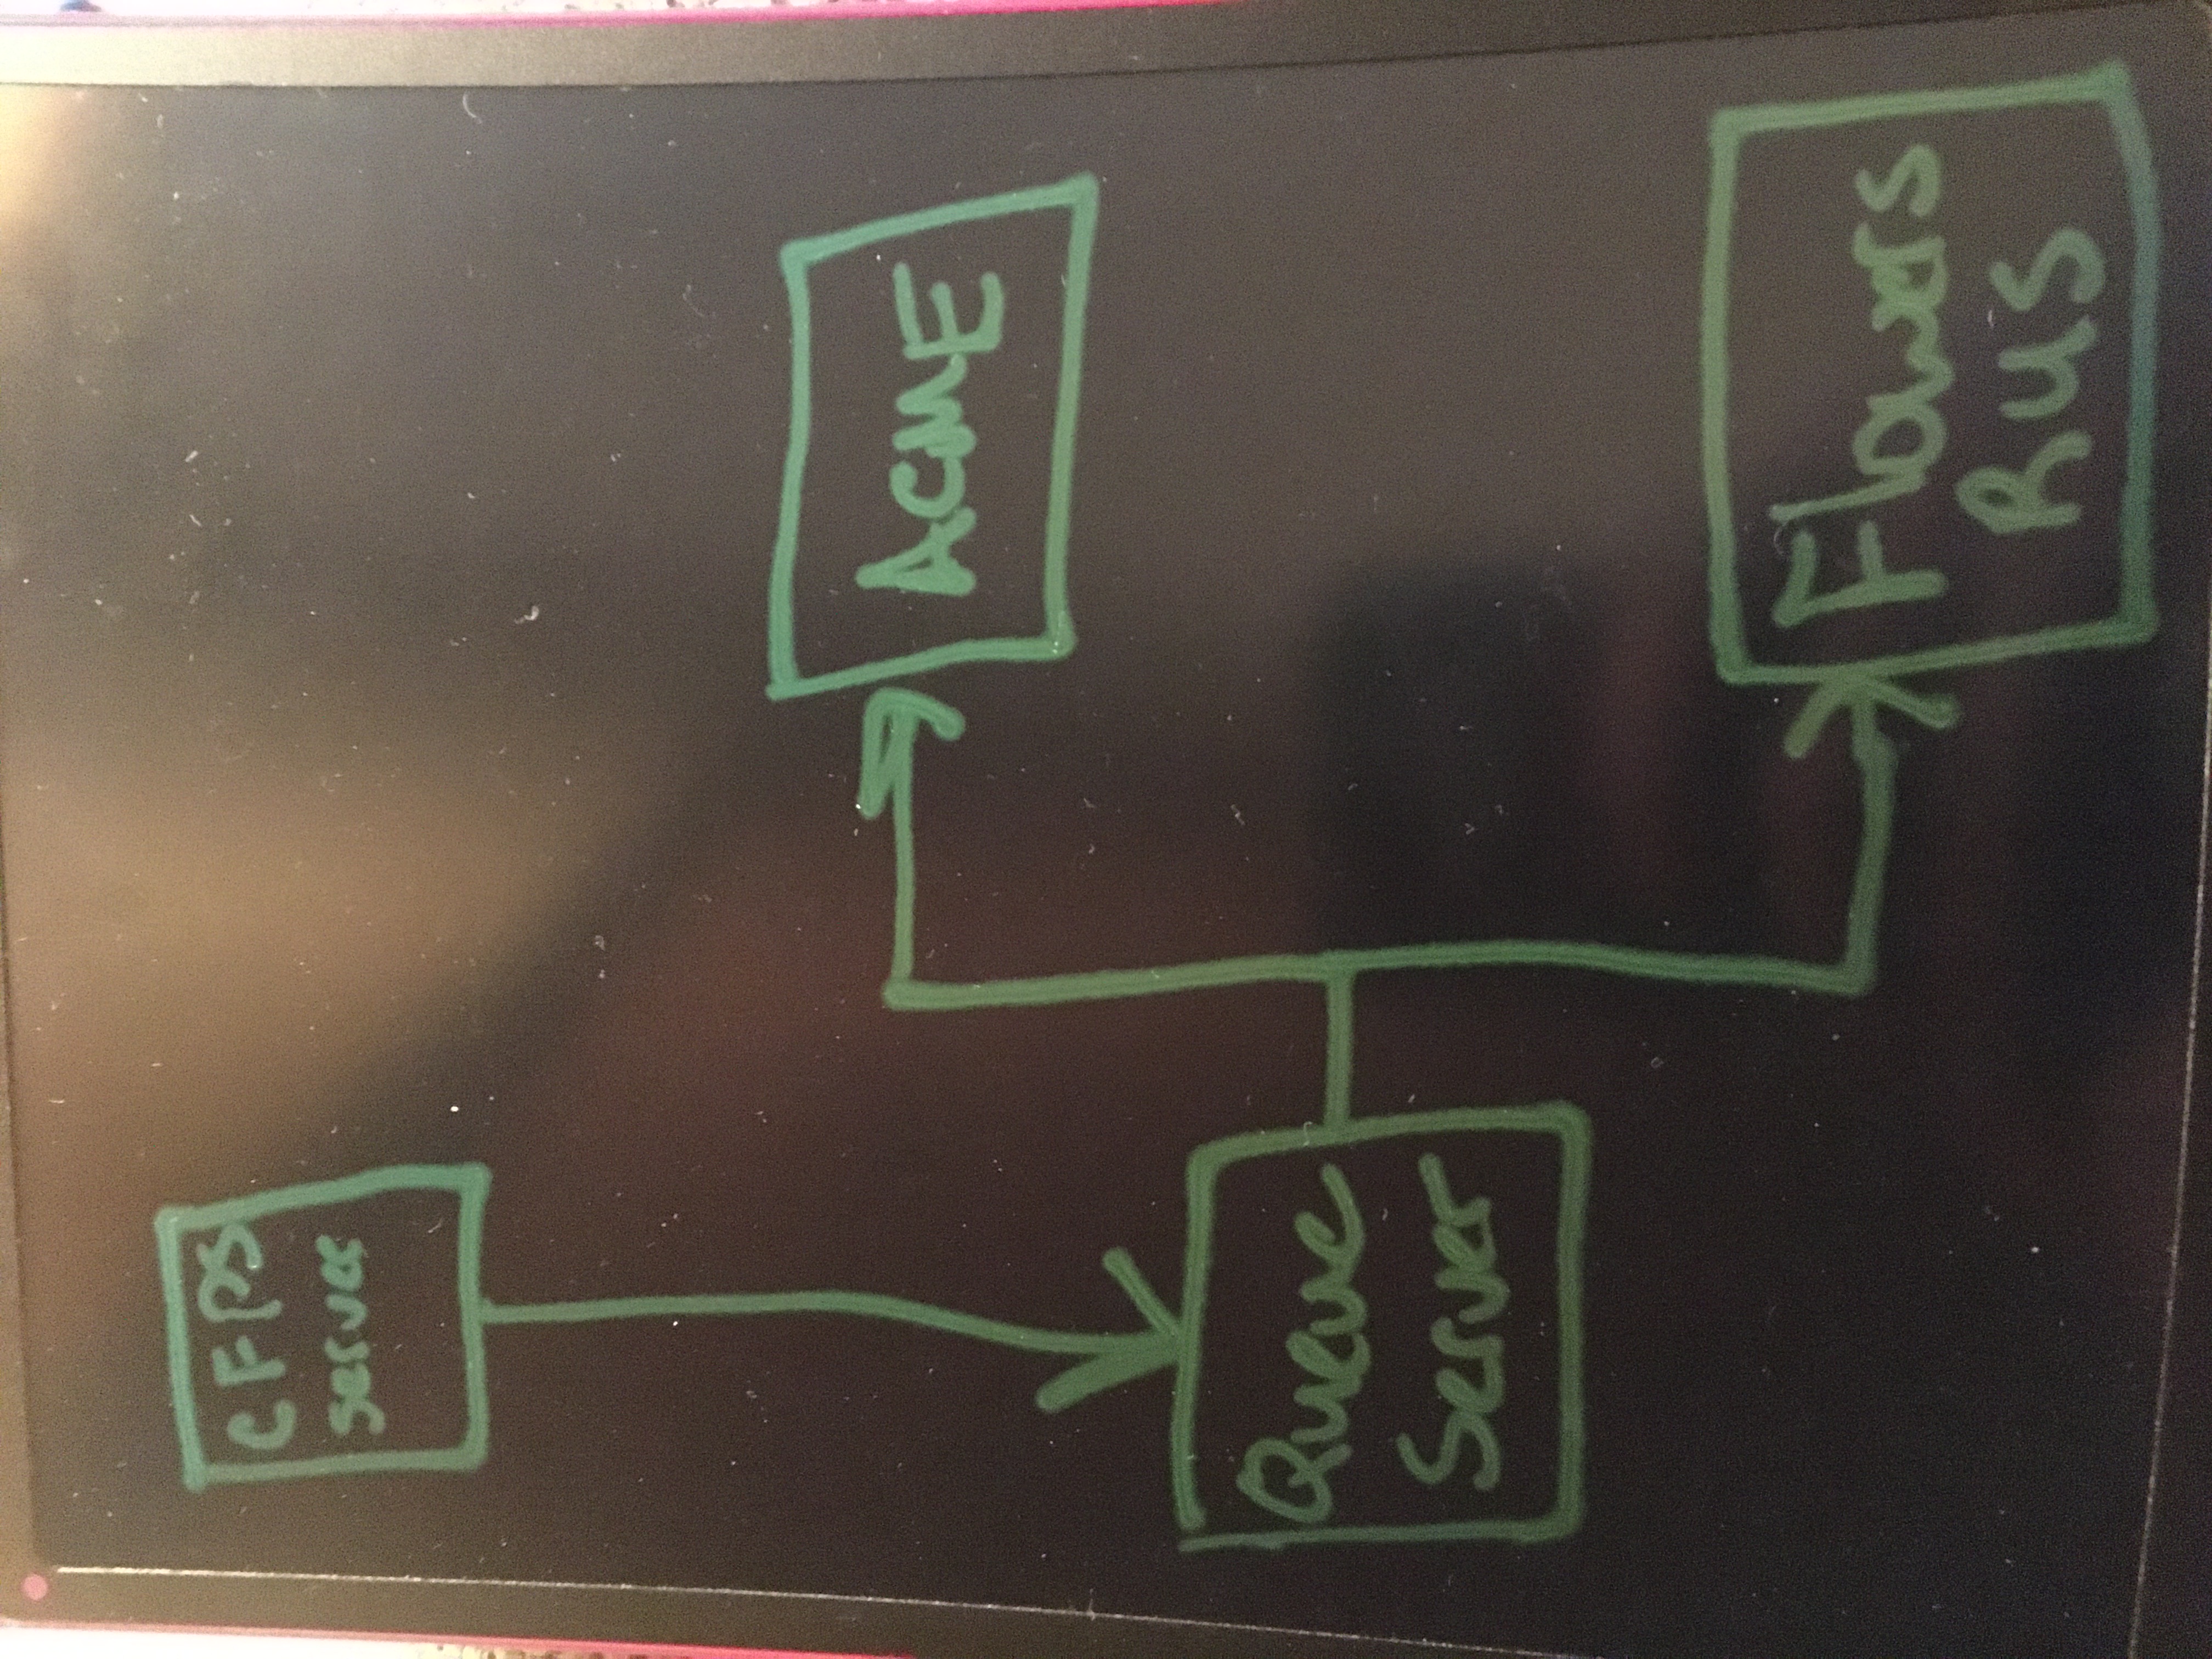 CFPS
server
ACME
Queue
Server
Flowers
R US